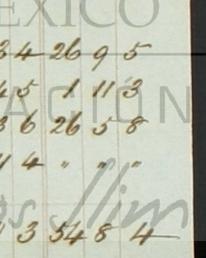 EXICO
34 26 9 5
45 1 11 3
ACIÓN
36 26 5 8
4 4 " " "
Slim
1 3 54 8 4